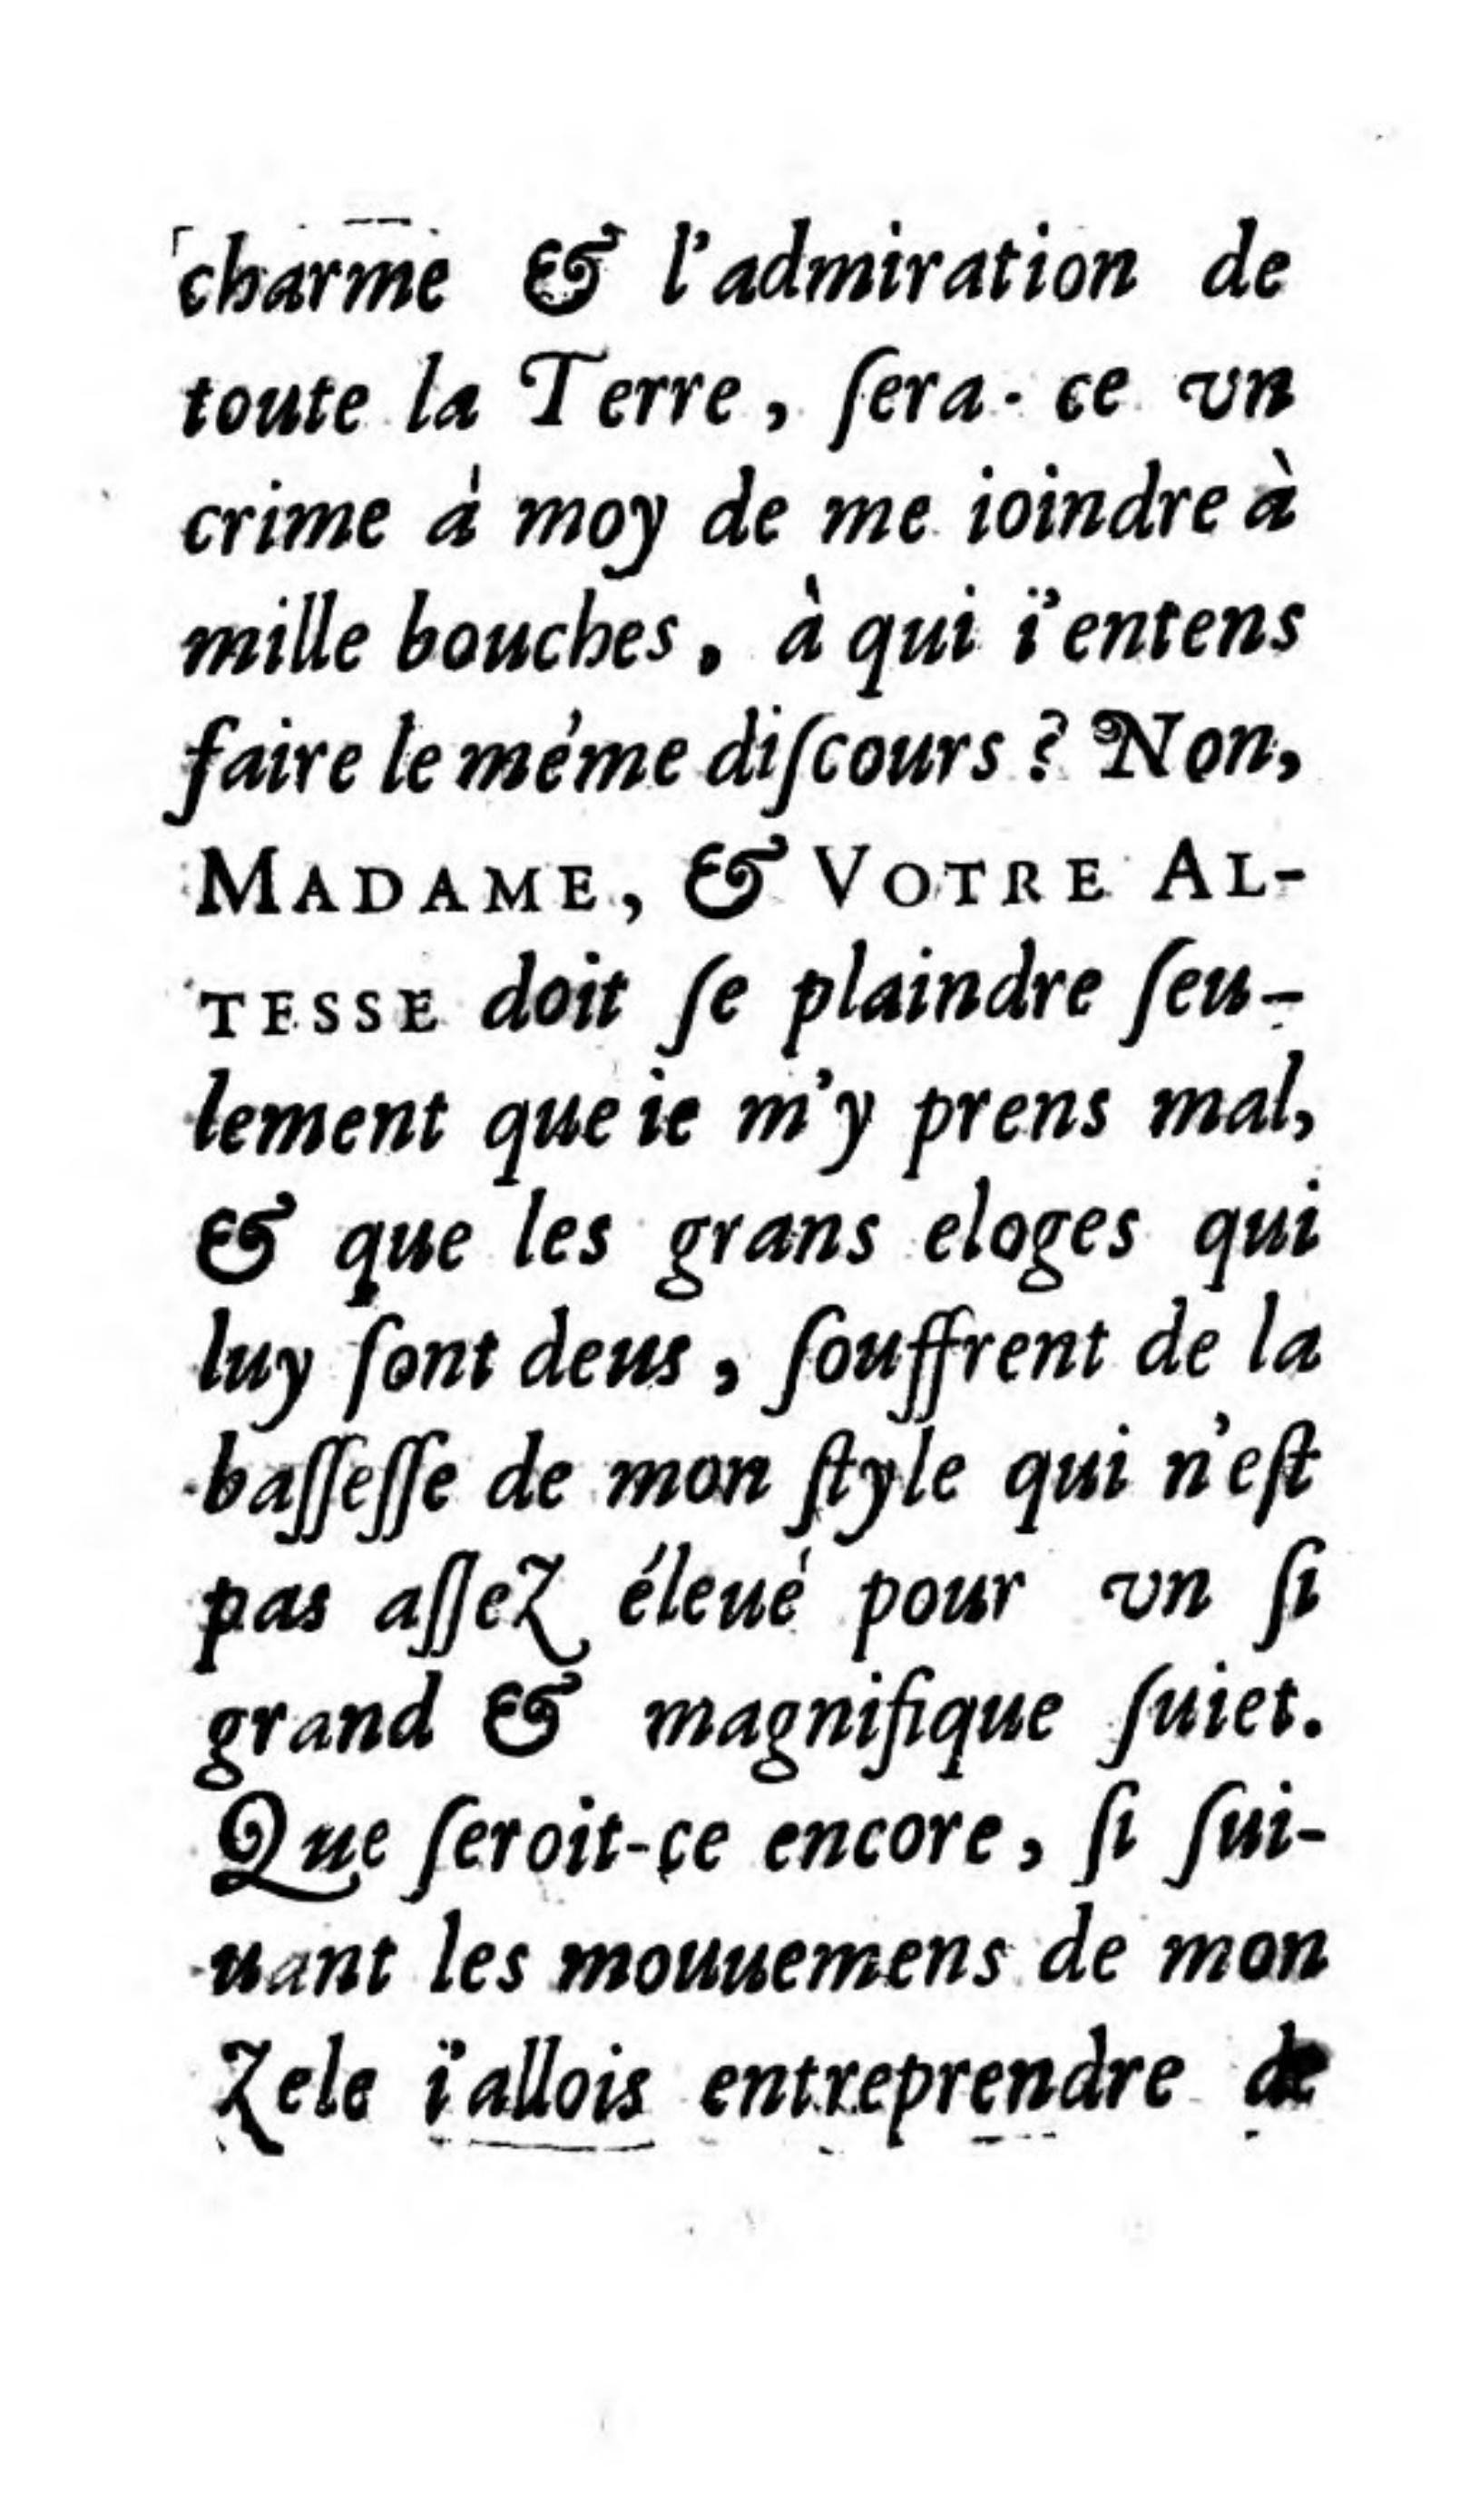 charme & l'admiration de
toute la Terre, ſera-ce vn
crime à moy de me ioindre à
mille bouches, à qui ï'entens
faire le méme diſcours? Non,
MADAME, & VOTRE AL-
TESSE doit ſe plaindre ſeu-
lement que ie m'y prens mal,
& que les grans eloges qui
luy ſont deus, ſouffrent de la
baſſeſſe de mon ſtyle qui n'eſt
pas aſſez éleué pour vn ſi
grand & magnifique ſuiet.
Que ſeroit-ce encore, ſi ſui-
uant les mouuemens de mon
zele ï'allois entreprendre de